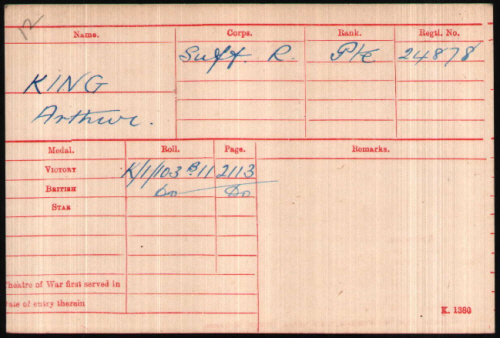 Name. Corps. Rank. Regtl. No.
Suff. R. Pte 24878
KING
Arthur.
Medal. Roll. Page. Remarks.
VICTORY K/1/103 B11 2113
BRITISH Do Do
STAR
Theatre of War first served in
Date of entry therein
K. 1380